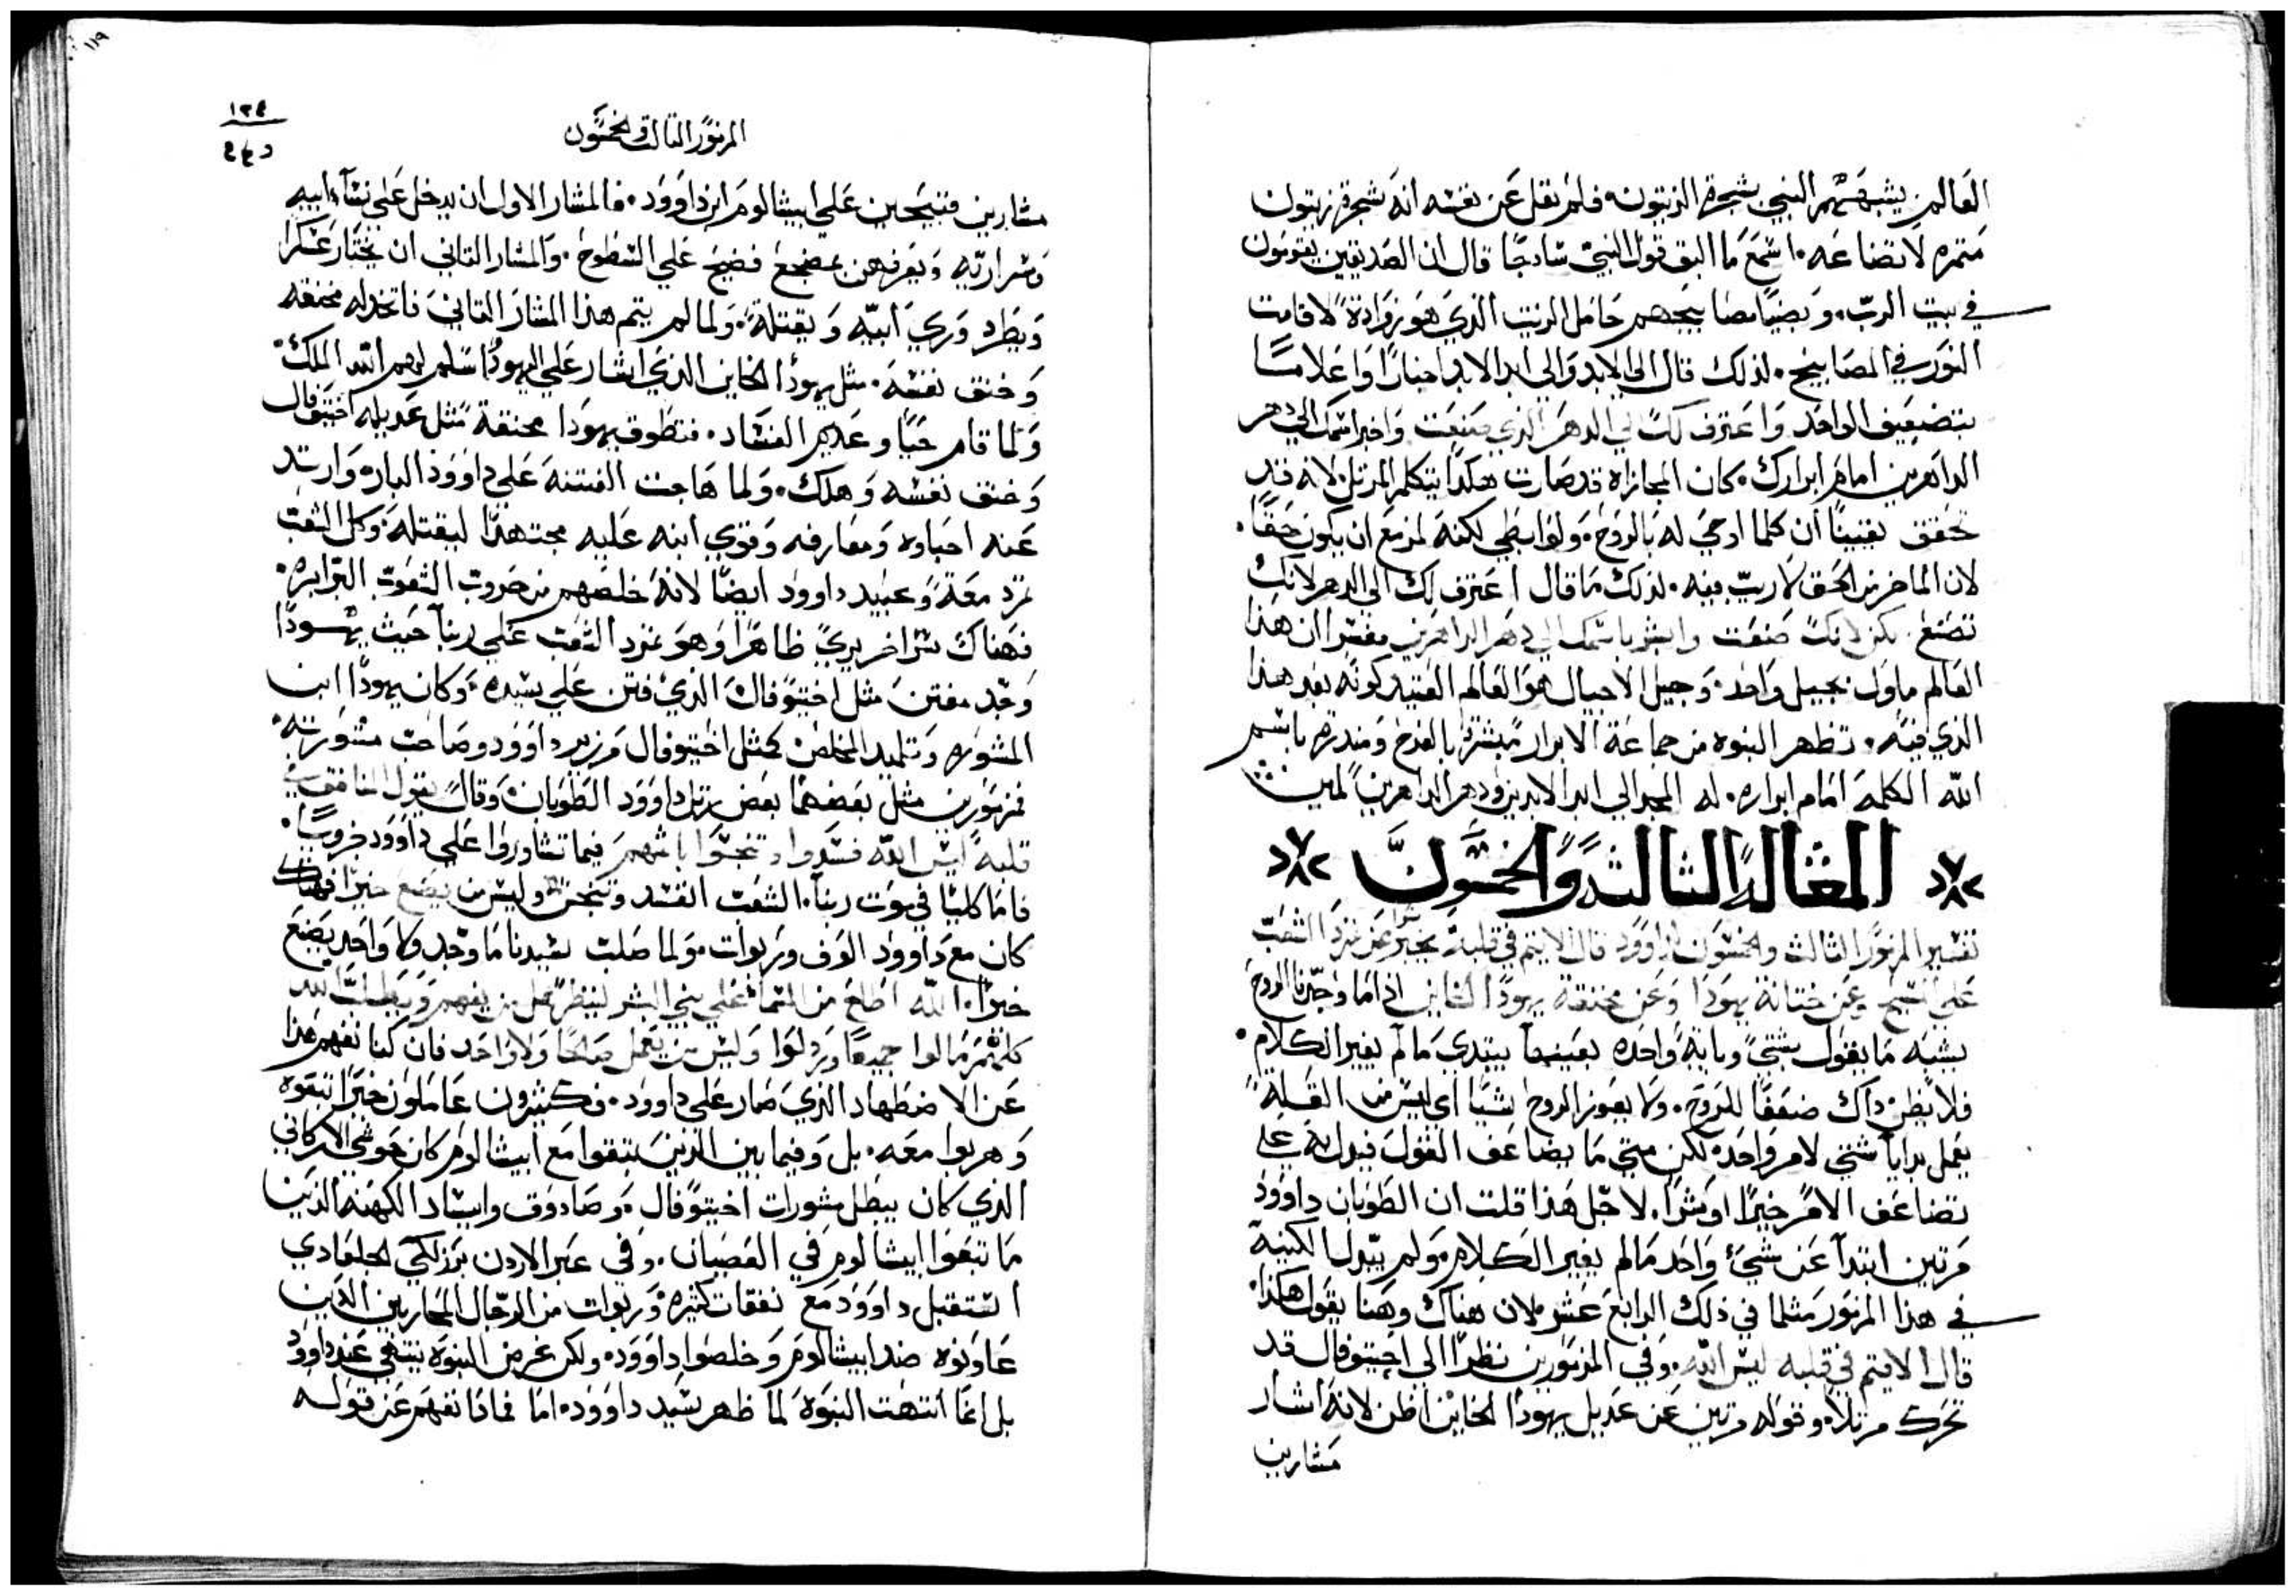 العالم يشبههم النبي بشجرة الزيتون. فلم يقل عن نفسه انه شجرة زيتون
متمره لاتضاعه. اسمع ما اليق قول النبي سادجًا قال ان الصديقين يقومون
في بيت الرب. وبضيا مصابيحهم حامل الزيت الذي هو زوادة لاقامت
النور في المصابيح. لذلك قال الي الابد والي ابد الابد احيانًا واعلامًا
بتضعيف الواحد واعترف لك الي الدهر الذي صنعت واخبر اسمك الي دهر
الداهرين امام ابرارك. كان المجازاه قد صارت هكدا يتكلم المرتل لانه قد
تحقق يقينًا ان كلما اوحي له بالروح. ولو ابطي لكنه لمزمع ان يكون حقًا.
لان الماخر من الحق لا ريب فيه. لذلك ما قال اعترف لك الي الدهر لانك
تصنع. لكن لانك صنعت وابشر باسمك الي دهر الداهرين مفسر ان هذا
العالم ماول بجيل واحد. وجيل الاجيال هو العالم العتيد كونه بعد هذا
الذي فيه. تظهر النبوه من جماعة الابرار مبشرة بالفرح ومندرة باسم
الله الكلمه امام ابراره. له المجد الي ابد الابدين ودهر الداهرين امين
المقالة الثالثة والخمسون
تفسير المزمور الثالث والخمسون لداوود قال الاتيم في قلبه يخبر سرًا عن تمرد الشعب
علي المسيح وعن خيانة يهودا وعن مخنقة يهودا الخاين اذ اما وجدنا الروح
يشبه ما يقول بشتي وبايه واحده بعينها يبتدي ما لم يغير الكلام.
فلا يظن داك ضعفًا للروح. ولا يعوز الروح شيًا اي ليس من القله
يعمل بدايا شتي لامر واحد. لكن متي ما يضاعف القول فيدل به علي
تضاعف الامر خيرًا او شرًا. لاجل هذا قلت ان الطوبان داوود
مرتين ابتدا عن شيء واحد ما لم يغير الكلام. ولم يبدل الكنية
في هدا المزمور مثلما في ذلك الرابع عشر. لان هناك وهنا يقول هكدا.
قال الاتيم في قلبه ليس الله. وفي المزمورين نظرًا الي اخيتوفال قد
تحرك مرتلًا. وقوله مرتين عن عديل يهودا الخاين اظن لانه اشار
مشارين
١١٩
١٣٤
المزمور الثالث والخمسون
مشارين قبيحين علي ابيشالوم ابن داوود. فالمشار الاول ان يدخل علي نساء ابيه
وسراريه ويعرفهن بمضجع فضيح علي السطوح. والمشار التاني ان يختار عسكرا
ويطرد وري ابيه ويقتله. ولما لم يتم هذا المشار التاني فاتخد له مخنقه
وخنق نفسه. مثل يهودا الخاين الذي اشار علي اليهود اسلم لهم ابن الملك.
ولما قام حيًا وعدم الفساد. فتطوق يهودا مخنقة مثل عديله اخيتوفال
وخنق نفسه وهلك. ولما هاجت الفتنه علي داوود البار وارتد
عنه احباوه ومعارفه وقوي ابنه عليه مجتهدًا ليقتله. وكل الشعب
تمرد معه وعبيد داوود ايضًا لانه خلصهم من حروب الشعوب البرابره.
فهناك سرًا اخر يري ظاهرًا وهو تمرد الشعب علي ربنا حيث يهودا
وجد مفتن مثل اخيتوفال الذي فتن علي سيده. وكان يهودا ابن
المشوره وتلميد المخلص كمثل اخيتوفال مزير داوود وصاحب مشورته.
فمزمورين مثل بعضهما بعض رتل داوود الطوبان. وقال يقول المنافق في
قلبه ليس الله فسدوا وتنجسوا باثمهم فيما تشاوروا علي داوود
فاما كليا في موت ربنا. الشعب افسد وتنجس وليس من يصنع خيرًا فهناك
كان مع داوود الوف وربوات. ولما صلب سيدنا ما وجد ولا واحد يصنع
خيرًا. الله اطلع من السما علي بني البشر لينظر هل من يفهم ويطلب الله
كلهم مالوا جميعًا ورذلوا وليس من يعمل صالحًا ولا واحد فان كنا نفهم هذا
عن الاضطهاد الذي صار علي داوود. فكثيرون عاملون خيرًا تبعوه
وهربوا معه. بل وفيما بين الذين تبعوا مع ابيشالوم كان حوشي الاركاني
الذي كان يبطل مشورات اخيتوفال. وصادوق وابيتار الكهنه الذين
ما تبعوا ابيشالوم في العصيان. وفي عبر الاردن برزلي الجلعادي
استقبل داوود مع نفقات كثيره. وربوات من الرجال المحاربين الذين
عاونوه ضد ابيشالوم وخلصوا داوود. ولكن غرض النبوه ينتفي عند داوود
بل انما انتهت النبوة لما ظهر سيد داوود. اما فمادا نفهم عن قوله